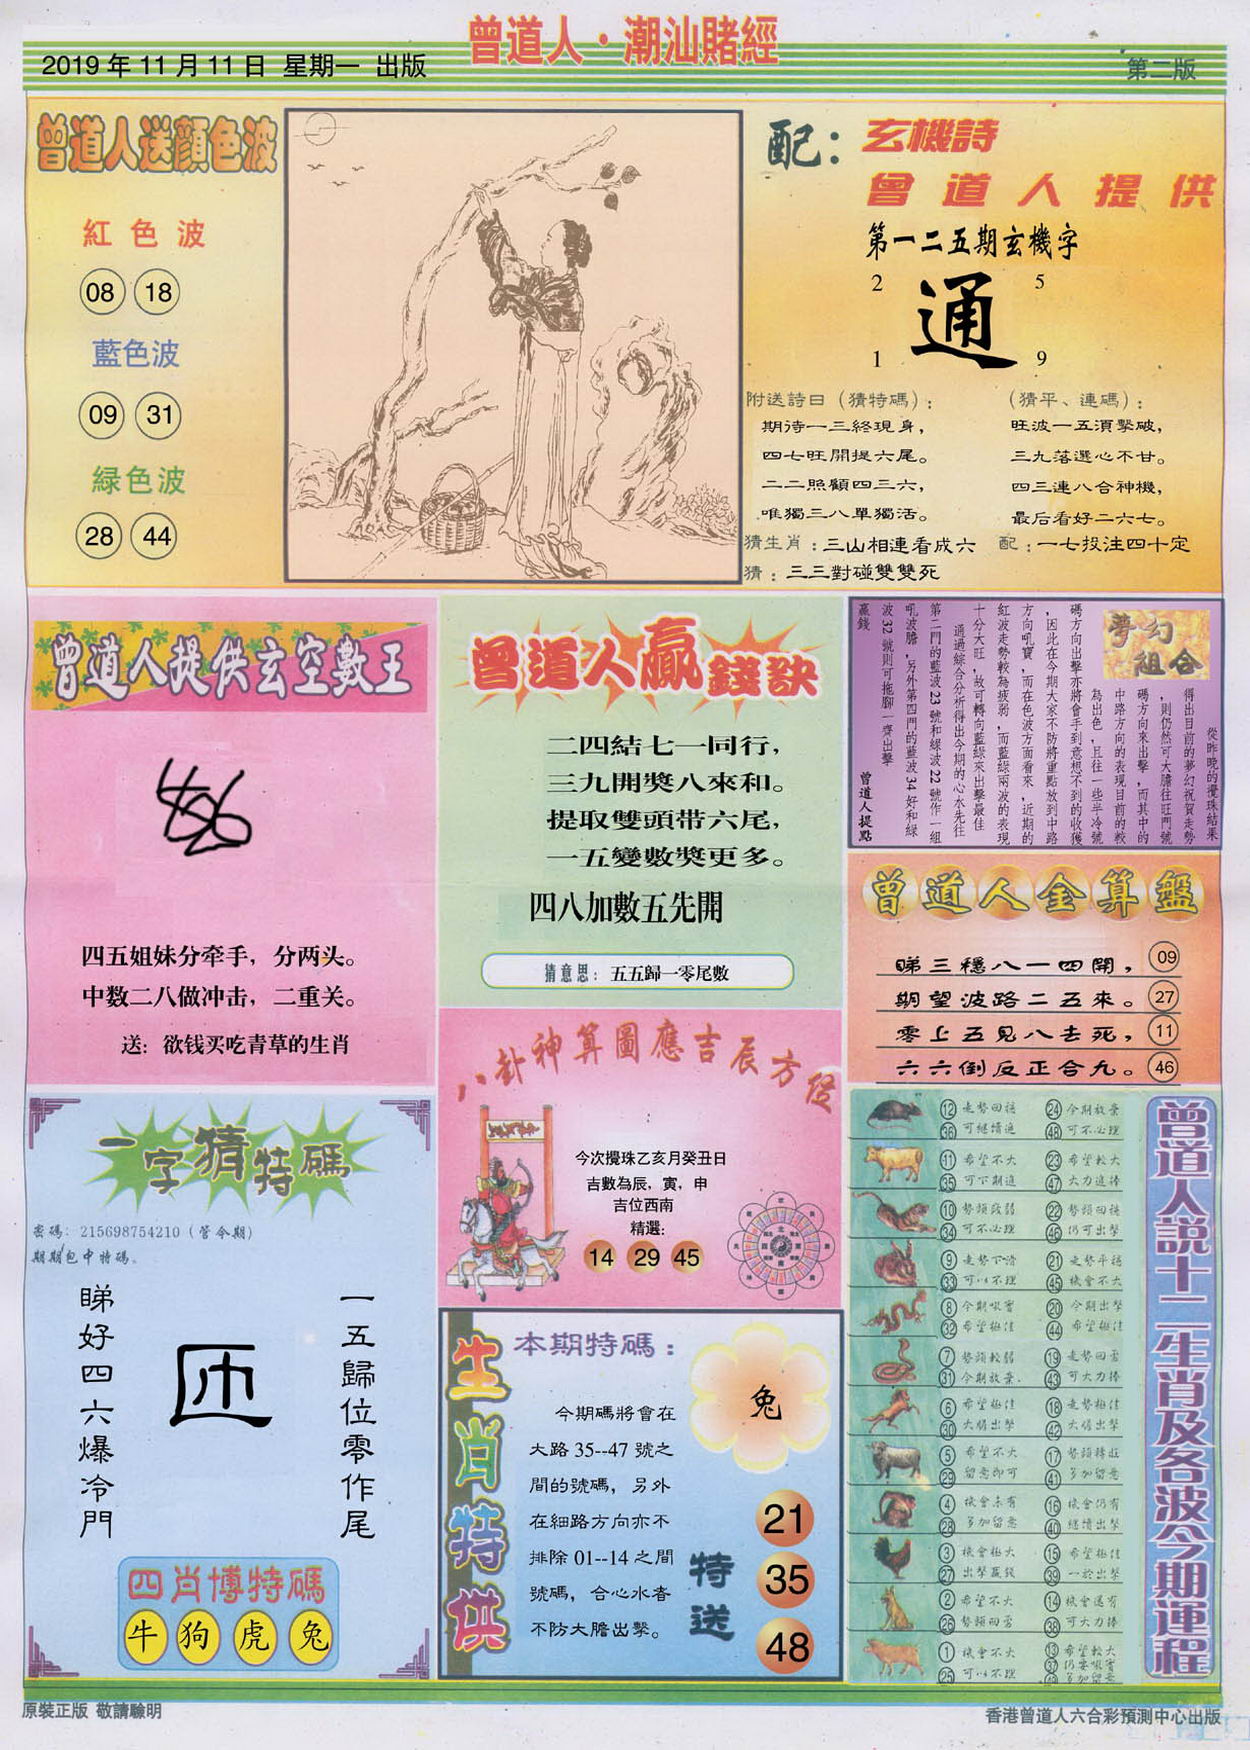 曾道人·潮汕賭經
2019年11月11日 星期一 出版
第二版
曾道人送顔色波
紅色波
08 18
藍色波
09 31
緑色波
28 44
配：玄機詩
曾道人提供
第一二五期玄機字
2 5
通
1 9
附送詩曰（猜特碼）：
期待一三終現身，
四七旺開提六尾。
二二照顧四三六，
唯獨三八單獨活。
（猜平、連碼）：
旺波一五須擊破，
三九落選心不甘。
四三連八合神機，
最后看好二六七。
猜生肖：三山相連看成六
配：一七投注四十定
猜：三三對碰雙雙死
曾道人提供玄空數王
四五姐妹分牵手，分两头。
中数二八做冲击，二重关。
送：欲钱买吃青草的生肖
曾道人贏錢訣
二四結七一同行，
三九開獎八來和。
提取雙頭带六尾，
一五變數獎更多。
四八加數五先開
猜意思：五五歸一零尾數
夢幻
組合
從昨晚的攪珠結果
得出目前的夢幻祝賀走勢
，則仍然可大膽往旺門號
碼方向來出擊，而其中的
中路方向的表現目前的較
為出色，且往一些半冷號
碼方向出擊亦將會手到意想不到的收獲
，因此在今期大家不防將重點放到中路
方向吼寶，而在色波方面看來，近期的
紅波走勢較為疲弱，而藍緑兩波的表現
十分大旺，故可轉向藍緑來出擊最佳
通過綜合分析得出今期的心水先往
第二門的藍波23號和緑波22號作一組
吼波膽，另外第四門的藍波34好和緑
波32號則可拖腳一齊出擊
贏錢
曾道人提點
曾道人金算盤
睇三穩八一四開，09
期望波路二五來。27
零上五見八去死，11
六六倒反正合九。46
八卦神算圖應吉辰方位
今次攪珠乙亥月癸丑日
吉數為辰，寅，申
吉位西南
精選：
14 29 45
一字猜特碼
密碼：215698754210（管令期）
期期包中特碼。
一五歸位零作尾
睇好四六爆冷門
四肖博特碼
牛 狗 虎 兔
生肖特供
本期特碼：
兔
今期碼將會在
大路35--47號之
間的號碼，另外
在細路方向亦不
排除01--14之間
號碼，合心水者
不防大膽出擊。
特送
21
35
48
曾道人説十二生肖及各波今期運程
12 走勢回穩 24 今期放棄
36 可繼續追 48 可不必理
11 希望不大 23 希望較大
35 可下期追 47 大力追捧
10 勢頭疲弱 22 勢頭回穩
34 可不必理 46 仍可出擊
9 走勢下滑 21 走勢平穩
33 可以不理 45 機會不大
8 今期吼寶 20 今期出擊
32 希望極佳 44 希望極佳
7 勢頭較弱 19 走勢回雷
31 今期放棄 43 可大力捧
6 希望極佳 18 走勢極佳
30 大膽出擊 42 大膽出擊
5 希望不大 17 勢頭轉旺
29 留意即可 41 多加留意
4 機會未有 16 機會仍有
28 多加留意 40 繼續出擊
3 機會極大 15 希望極佳
27 出擊贏錢 39 一於出擊
2 希望不大 14 機會還有
26 勢頭回雷 38 可大力捧
1 機會不大 13 希望較大
25 可以不理 37 仍要吼實
49 多加留意
原裝正版 敬請驗明
香港曾道人六合彩預測中心出版